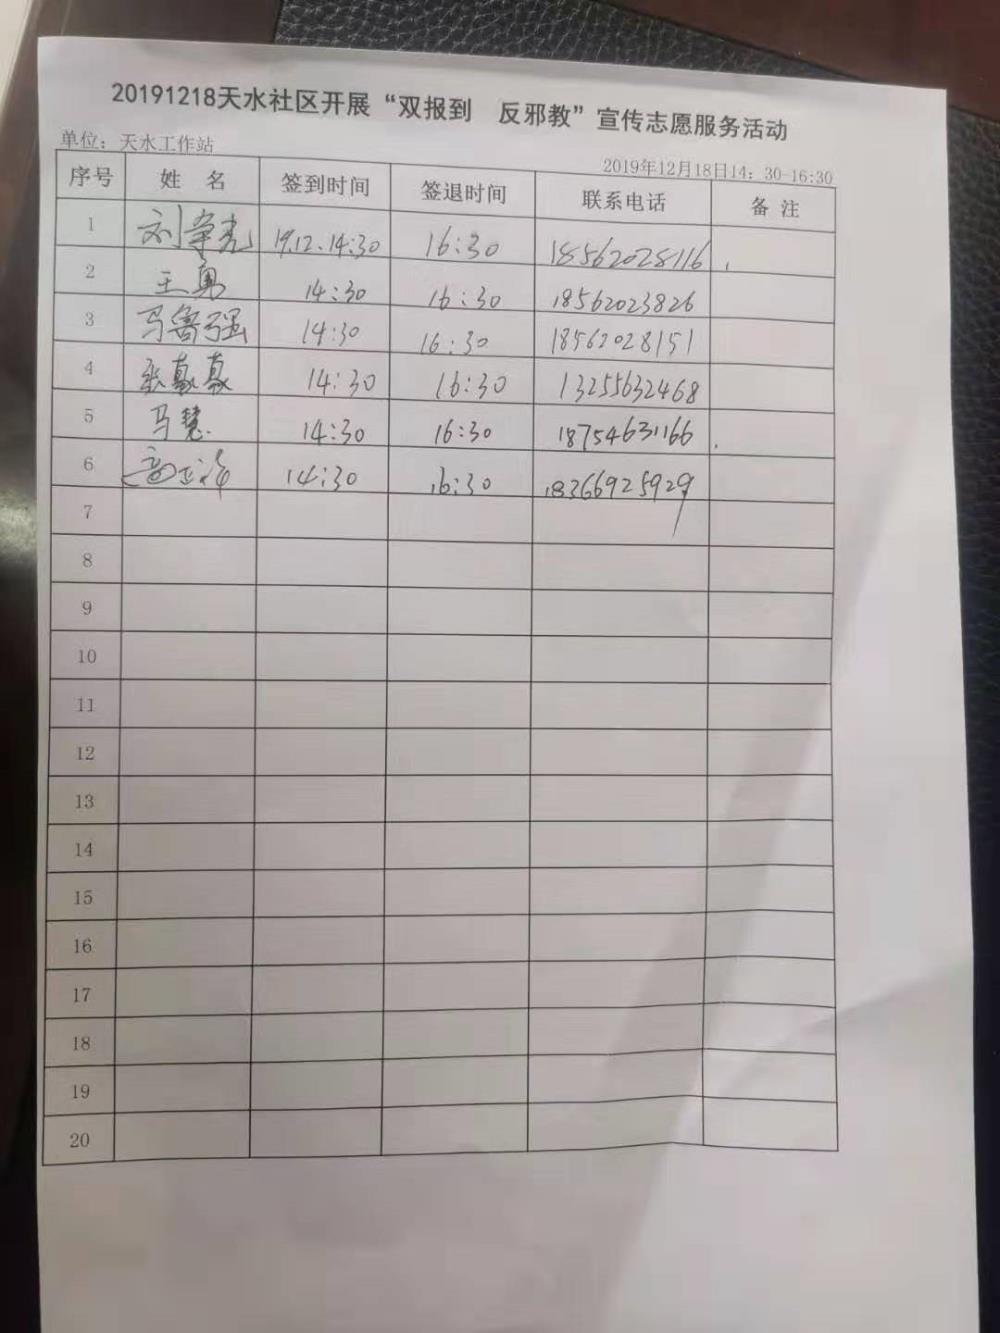 20191218天水社区开展“双报到 反邪教”宣传志愿服务活动
单位：天水工作站
2019年12月18日14：30-16:30
序号 姓 名 签到时间 签退时间 联系电话 备 注
1 刘争亮 19.12.14:30 16:30 18562028116
2 王勇 14:30 16:30 18562023826
3 马鲁强 14:30 16:30 18562028151
4 张 14:30 16:30 13255632468
5 马慧 14:30 16:30 18754631166
6 14:30 16:30 18366925929
7
8
9
10
11
12
13
14
15
16
17
18
19
20